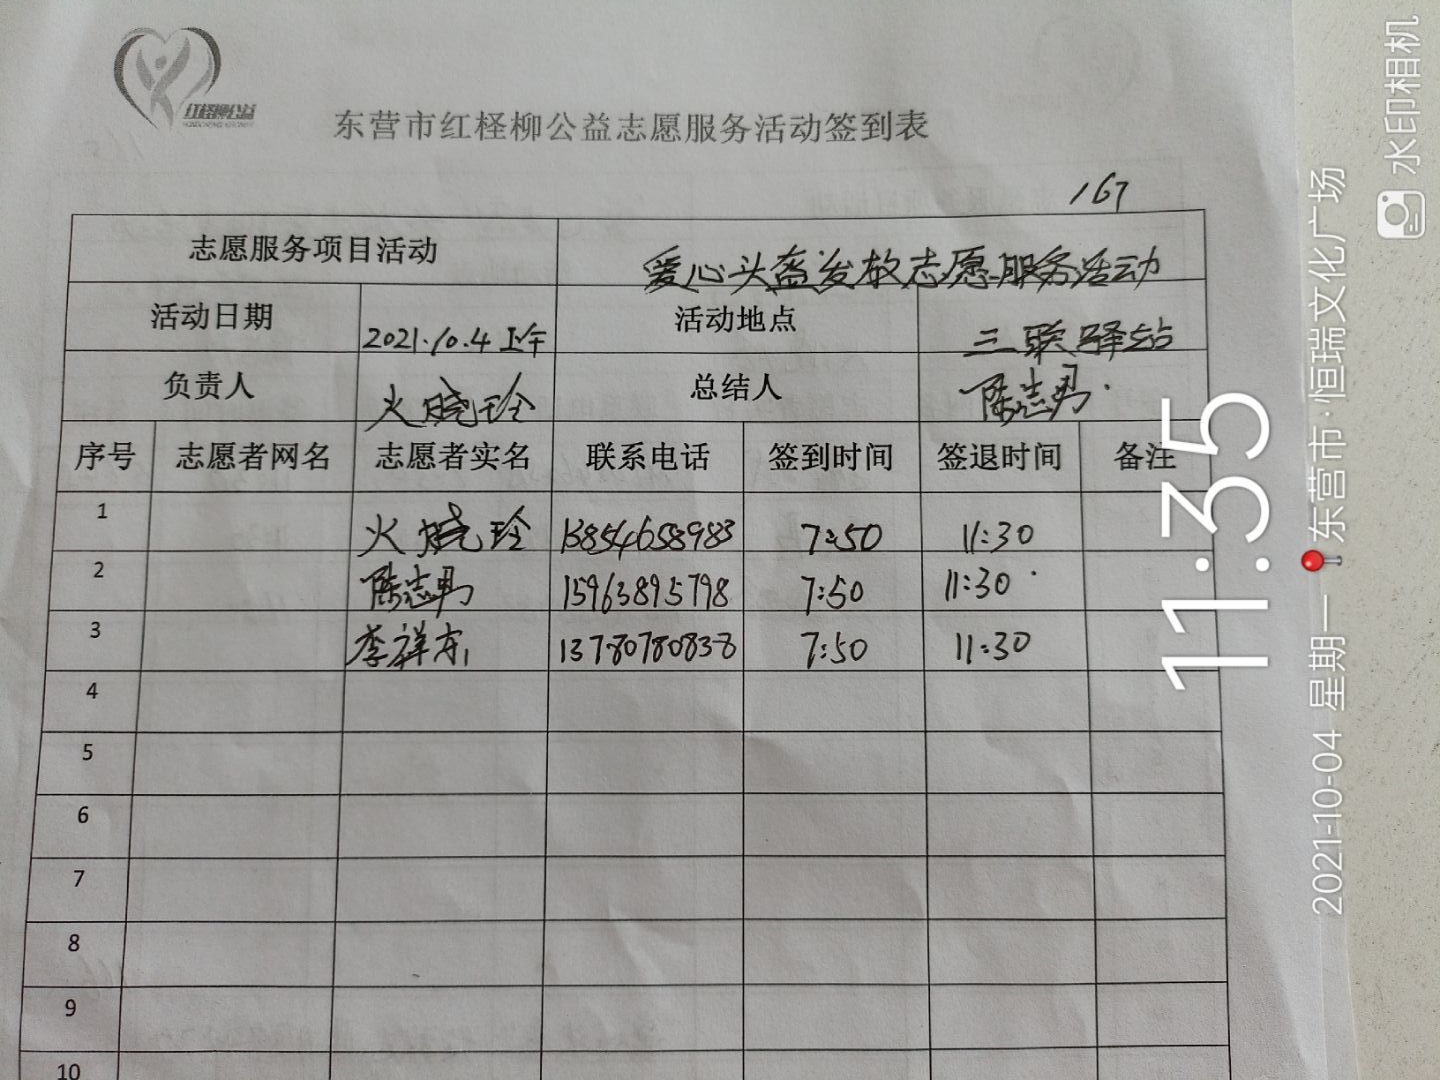 红柽柳公益
东营市红柽柳公益志愿服务活动签到表
167
志愿服务项目活动 爱心头盔发放志愿服务活动
活动日期 2021.10.4 上午 活动地点 三联驿站
负责人 火晓玲 总结人 陈志勇
序号 志愿者网名 志愿者实名 联系电话 签到时间 签退时间 备注
1 火晓玲 13854658983 7:50 11:30
2 陈志勇 15963895798 7:50 11:30
3 李祥东 13780780838 7:50 11:30
4
5
6
7
8
9
10
11:35
2021-10-04 星期一 东营市·恒瑞文化广场
水印相机